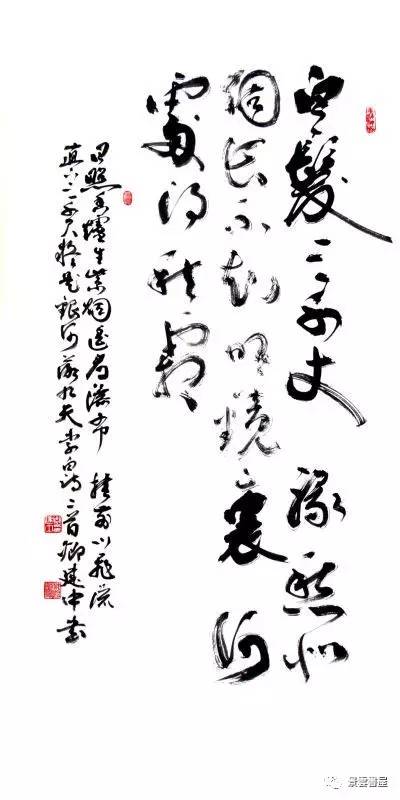 白髮三千丈緣愁似
個長不知明鏡裏何
處得秋霜
日照香爐生紫煙遙看瀑布掛前川飛流
直下三千尺疑是銀河落九天李白詩二首卿建中書
景雲書屋